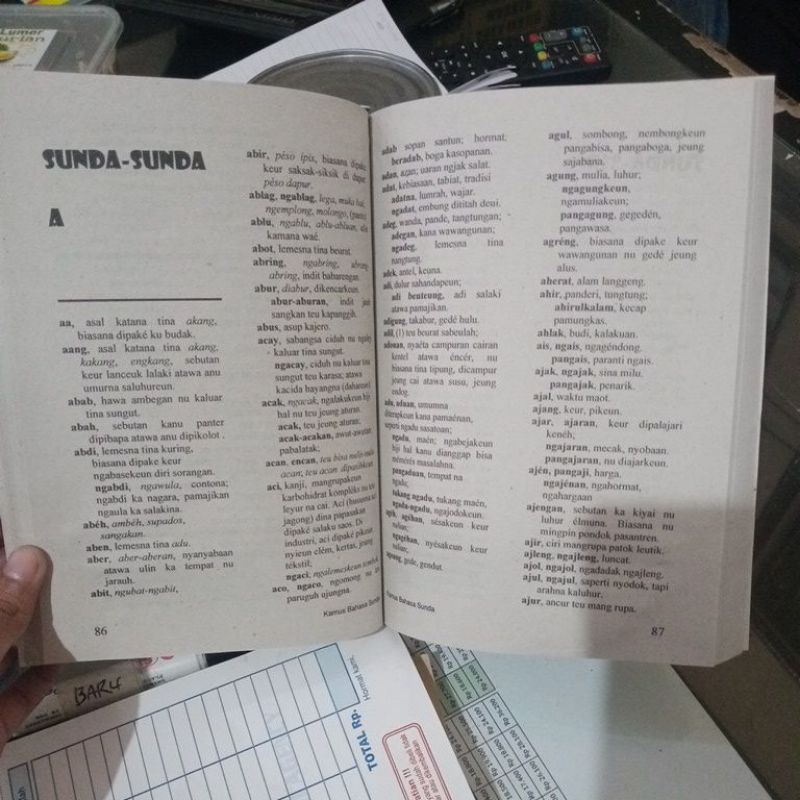 SUNDA-SUNDA
A
aa, asal katana tina akang,
biasana dipaké ku budak.
aang, asal katana tina akang,
kakang, engkang, sebutan
keur lanceuk lalaki atawa anu
umurna saluhureun.
abab, hawa ambegan nu kaluar
tina sungut.
abah, sebutan kanu panter
dipibapa atawa anu dipikolot.
abdi, lemesna tina kuring,
biasana dipake keur
ngabasekeun diri sorangan.
ngabdi, ngawula, contona;
ngabdi ka nagara, pamajikan
ngaula ka salakina.
abéh, ambéh, supados,
sangakan.
aben, lemesna tina adu.
aber, aber-aberan, nyanyabaan
atawa ulin ka tempat nu
jarauh.
abit, ngubat-ngabit,
86
abir, péso ipis, biasana dipaké
keur saksak-siksik di dapur
péso dapur.
ablag, ngablag, lega, muka
ngemplong, molongo,
ablu, ngablu, ablu-abluan, ulin
kamana waé.
abot, lemesna tina beurat.
abring, ngabring, abring-
abring, indit babarengan.
abur, diabur, dikencarkeun.
abur-aburan, indit
sangkan teu kapanggih.
abus, asup kajero.
acay, sabangsa ciduh nu ngalay
kaluar tina sungut.
ngacay, ciduh nu kaluar tina
sungut teu karasa; atawa
kacida hayangna
acak, ngacak, ngalakukeun hiji
hal nu teu jeung aturan.
acak, teu jeung aturan;
acak-acakan, awut-awutan
pabalatak;
acan, encan, teu bisa
acan; teu acan
aci, kanji, mangrupakeun
karbohidrat kompléks nu
leyur na cai. Aci
jagong) dina papasakan
dipaké salaku saos. Di
industri, aci dipaké pikeun
nyieun elém, kertas, jeung
tékstil;
ngaci, ngalemeskeun
aco, ngaco, ngomong nu
paruguh ujungna.
Kamus Bahasa Sunda
adab sopan santun; hormat;
beradab, boga kasopanan.
adan, azan; uaran ngjak salat.
adat, kebiasaan, tabiat, tradisi
adatna, lumrah, wajar.
ngadat, embung dititah deui.
adeg, wanda, pande, tangtungan;
adegan, kana wawangunan;
ngadeg, lemesna tina
nangtung.
adek, antel, keuna.
adi, dulur sahandapeun;
adi beuteung, adi salaki
atawa pamajikan.
adigung, takabur, gedé hulu.
adil, (1) teu beurat sabeulah;
adonan, nyaéta campuran cairan
kentel atawa éncér, nu
biasana tina tipung, dicampur
jeung cai atawa susu, jeung
endog.
adu, aduan, umumna
diterapkeun kana pamaénan,
saperti ngadu sasatoan;
ngadu, maén; ngabejakeun
hiji hal kanu dianggap bisa
méréois masalahna.
pangaduan, tempat na
ngadu;
tukang ngadu, tukang maén,
ngadu-ngadu, ngajodokeun.
agih, agihan, sésakeun keur
ngagihan, nyésakeun keur
agung, gede, gendut.
Kamus Bahasa Sunda
agul, sombong, nembongkeun
pangabisa, pangaboga, jeung
sajabana.
agung, mulia, luhur;
ngagungkeun,
ngamuliakeun;
pangagung, gegedén,
pangawasa.
agréng, biasana dipake keur
wawangunan nu gedé jeung
alus.
aherat, alam langgeng.
ahir, panderi, tungtung;
ahirulkalam, kecap
pamungkas.
ahlak, budi, kalakuan.
ais, ngais, ngagéndong.
pangais, paranti ngais.
ajak, ngajak, sina milu.
pangajak, penarik.
ajal, waktu maot.
ajang, keur, pikeun.
ajar, ajaran, keur dipalajari
kenéh;
ngajaran, mecak, nyobaan.
pangajaran, nu diajarkeun.
ajén, pangaji, harga.
ngajénan, ngahormat,
ngahargaan
ajengan, sebutan ka kiyai nu
luhur élmuna. Biasana nu
mingpin pondok pasantren.
ajir, ciri mangrupa patok leutik.
ajleng, ngajleng, luncat.
ajol, ngajol, ngadadak ngajleng.
ajul, ngajul, saperti nyodok, tapi
arahna kaluhur.
ajur, ancur teu mang rupa.
87
BARU
TOTAL RP.
Hormat kami,